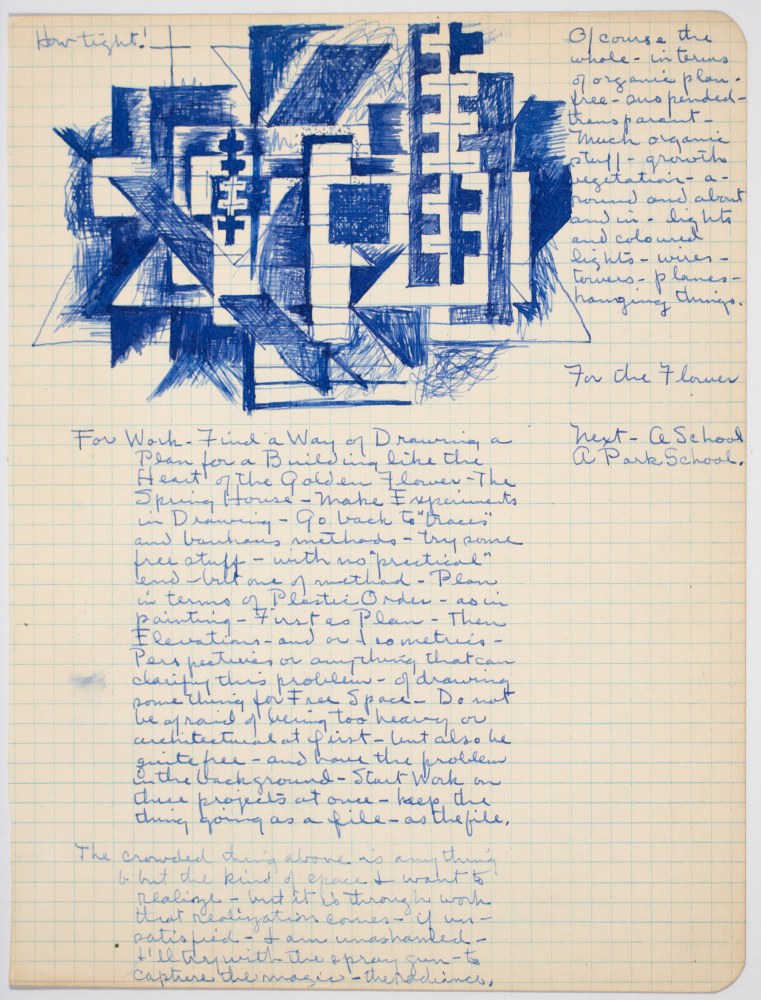 How tight!
Of course the
whole - in terms
of organic plan -
free - suspended -
transparant -
Much organic
stuff - growth
vegetation - a -
round and about
and in - lights
and coloured
lights - wires -
towers - planes -
hanging things.
For the Flower
Next - A School
A Park School.
For Work - Find a Way of Drawing a
Plan for a Building like the
Heart of the Golden Flower - The
Spring House - Make Experiments
in Drawing - Go back to "traces"
and bauhaus methods - try some
free stuff - with no "practical"
end - but one of method - Plan
in terms of Plastic Order - as in
painting - First as Plan - Then
Elevations - and or Isometrics -
Perspectives or anything that can
clarify this problem - of drawing
something for Free Space - Do not
be afraid of being too heavy or
architectural at first - but also be
quite free - and have the problem
in the background - Start Work on
these projects at once - keep the
thing going as a file - as the file.
The crowded thing above is anything
but the kind of space I want to
realize - but it is through work
that realization comes - if un -
satisfied - I am unashamed -
I'll try with the spray gun - to
capture the magic - the radiance.